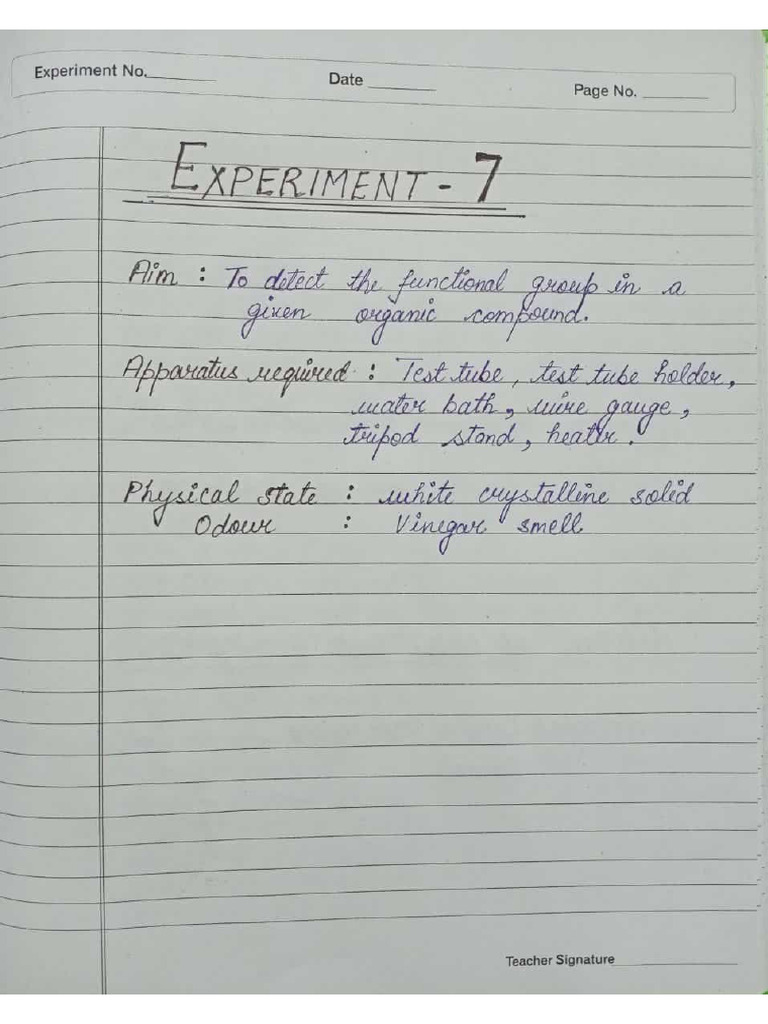 Experiment No.
Date
Page No.
EXPERIMENT - 7
Aim : To detect the functional group in a
given organic compound.
Apparatus required : Test tube, test tube holder,
water bath, wire gauge,
tripod stand, heater.
Physical state : white crystalline solid
Odour : Vinegar smell
Teacher Signature